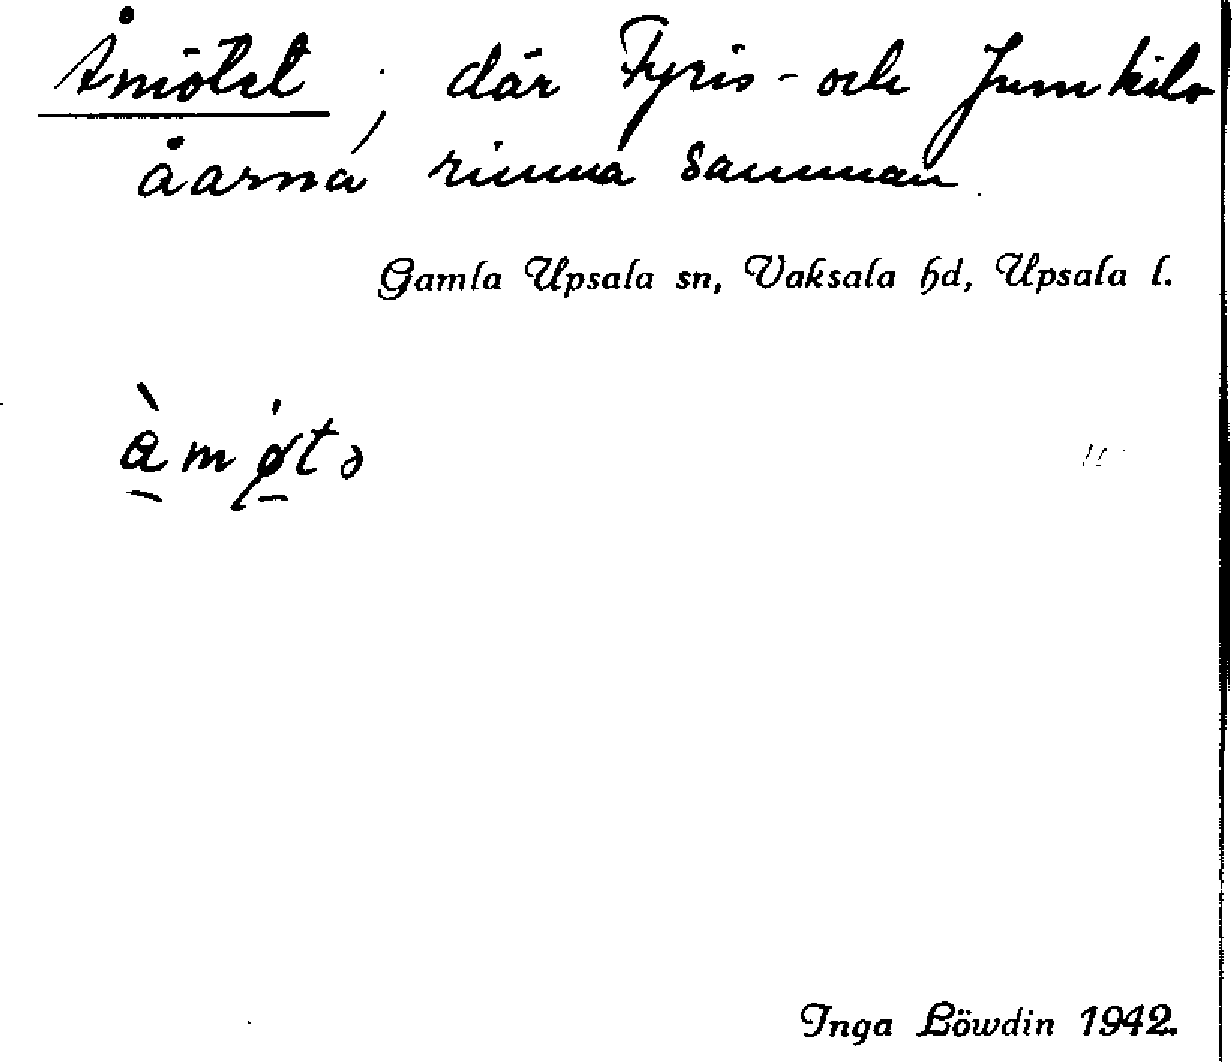 Åmötet, där Fyris- och Jumkils
åarna rinna samman.
Gamla Upsala sn, Vaksala hd, Upsala l.
Inga Löwdin 1942.